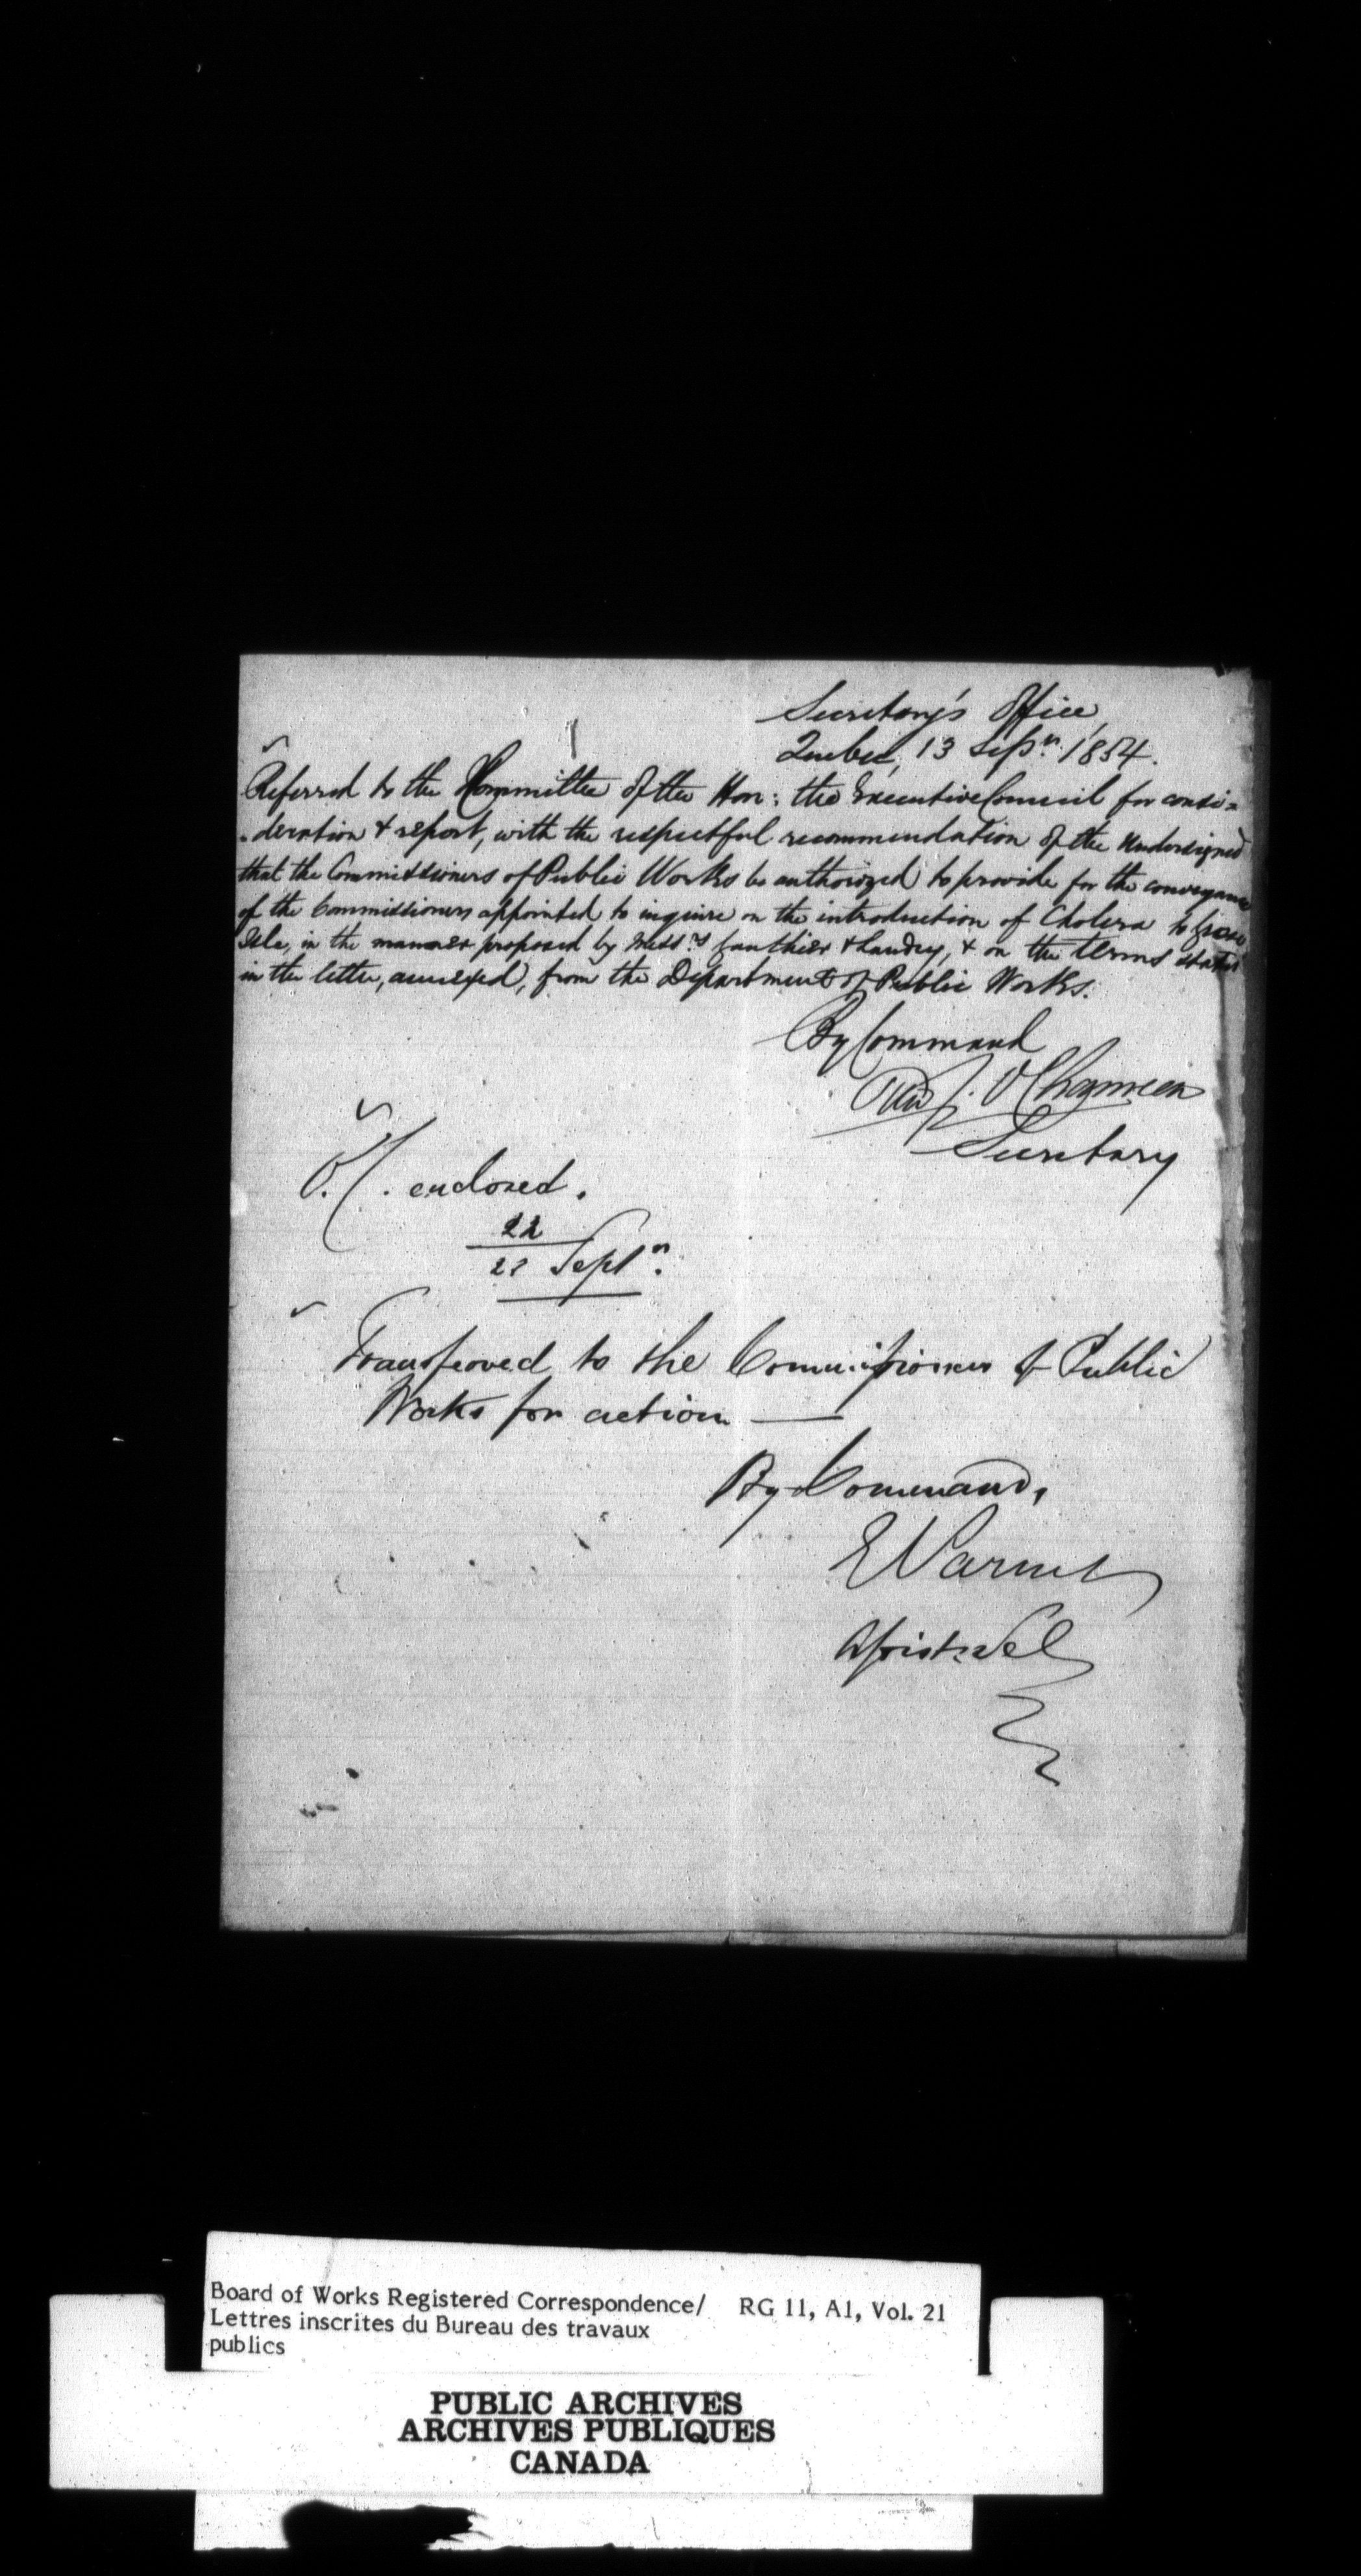 Secretary's Office,
Quebec, 13 Sepr. 1854.
Referred to the Committee of the Hon: the Executive Council for consi=
=deration & report, with the respectful recommendation of the Undersigned
that the Commissioners of Public Works be authorized to provide for the conveyance
of the Commissioners appointed to inquire on the introduction of Cholera to Grosse
Isle, in the manner proposed by Messrs. Gauthier & Landry, & on the terms stated
in the letter, annexed, from the Department of Public Works.
By Command
J. O Chauveau
Secretary
O.C. enclosed.
22
Septr.
Transferred to the Commissioners of Public
Works for action —
By Command,
E Parent
Asst Sec
Board of Works Registered Correspondence/ RG 11, A1, Vol. 21
Lettres inscrites du Bureau des travaux
publics
PUBLIC ARCHIVES
ARCHIVES PUBLIQUES
CANADA